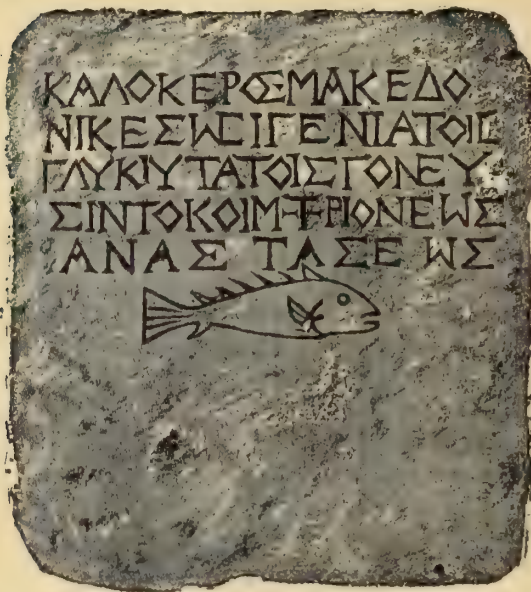 ΚΑΛΟΚΕΡΟΣΜΑΚΕΔΟ
ΝΙΚΕΣѠCΙΓΕΝΙΑΤΟΙC
ΓΛΥΚΙΥΤΑΤΟΙΣΓΟΝΕΥ
ΣΙΝΤΟΚΟΙΜΗΤΡΙΟΝΕѠΣ
ΑΝΑΣΤΑΣΕѠΣ